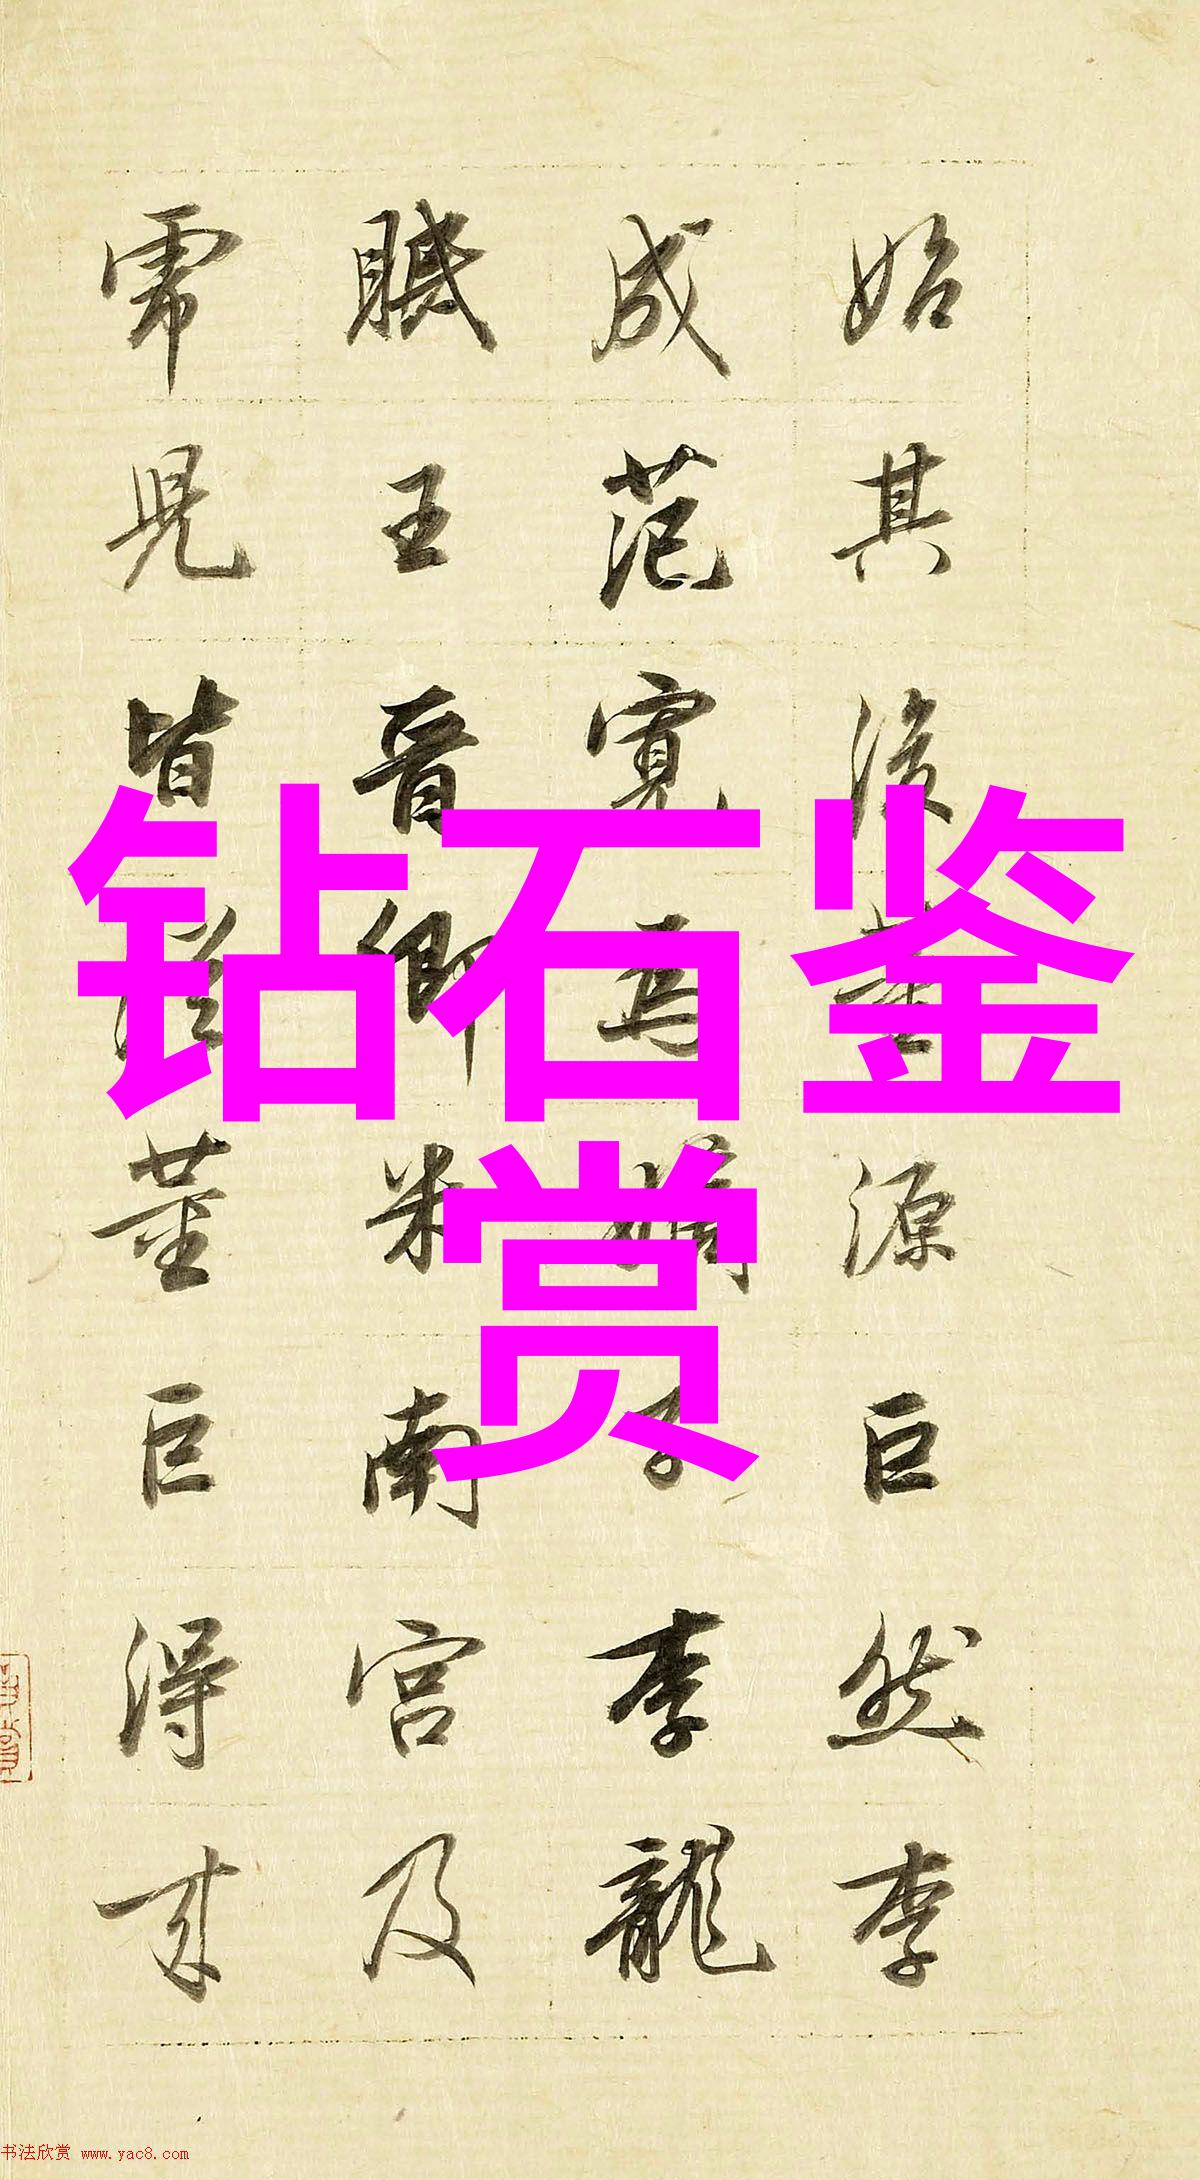 钻石鉴
赏
始其後董源巨然李
成范寬為嫡子李龍
眠王晉卿米南宮及
虎兒皆從董巨得來
书法欣赏 www.yac8.com